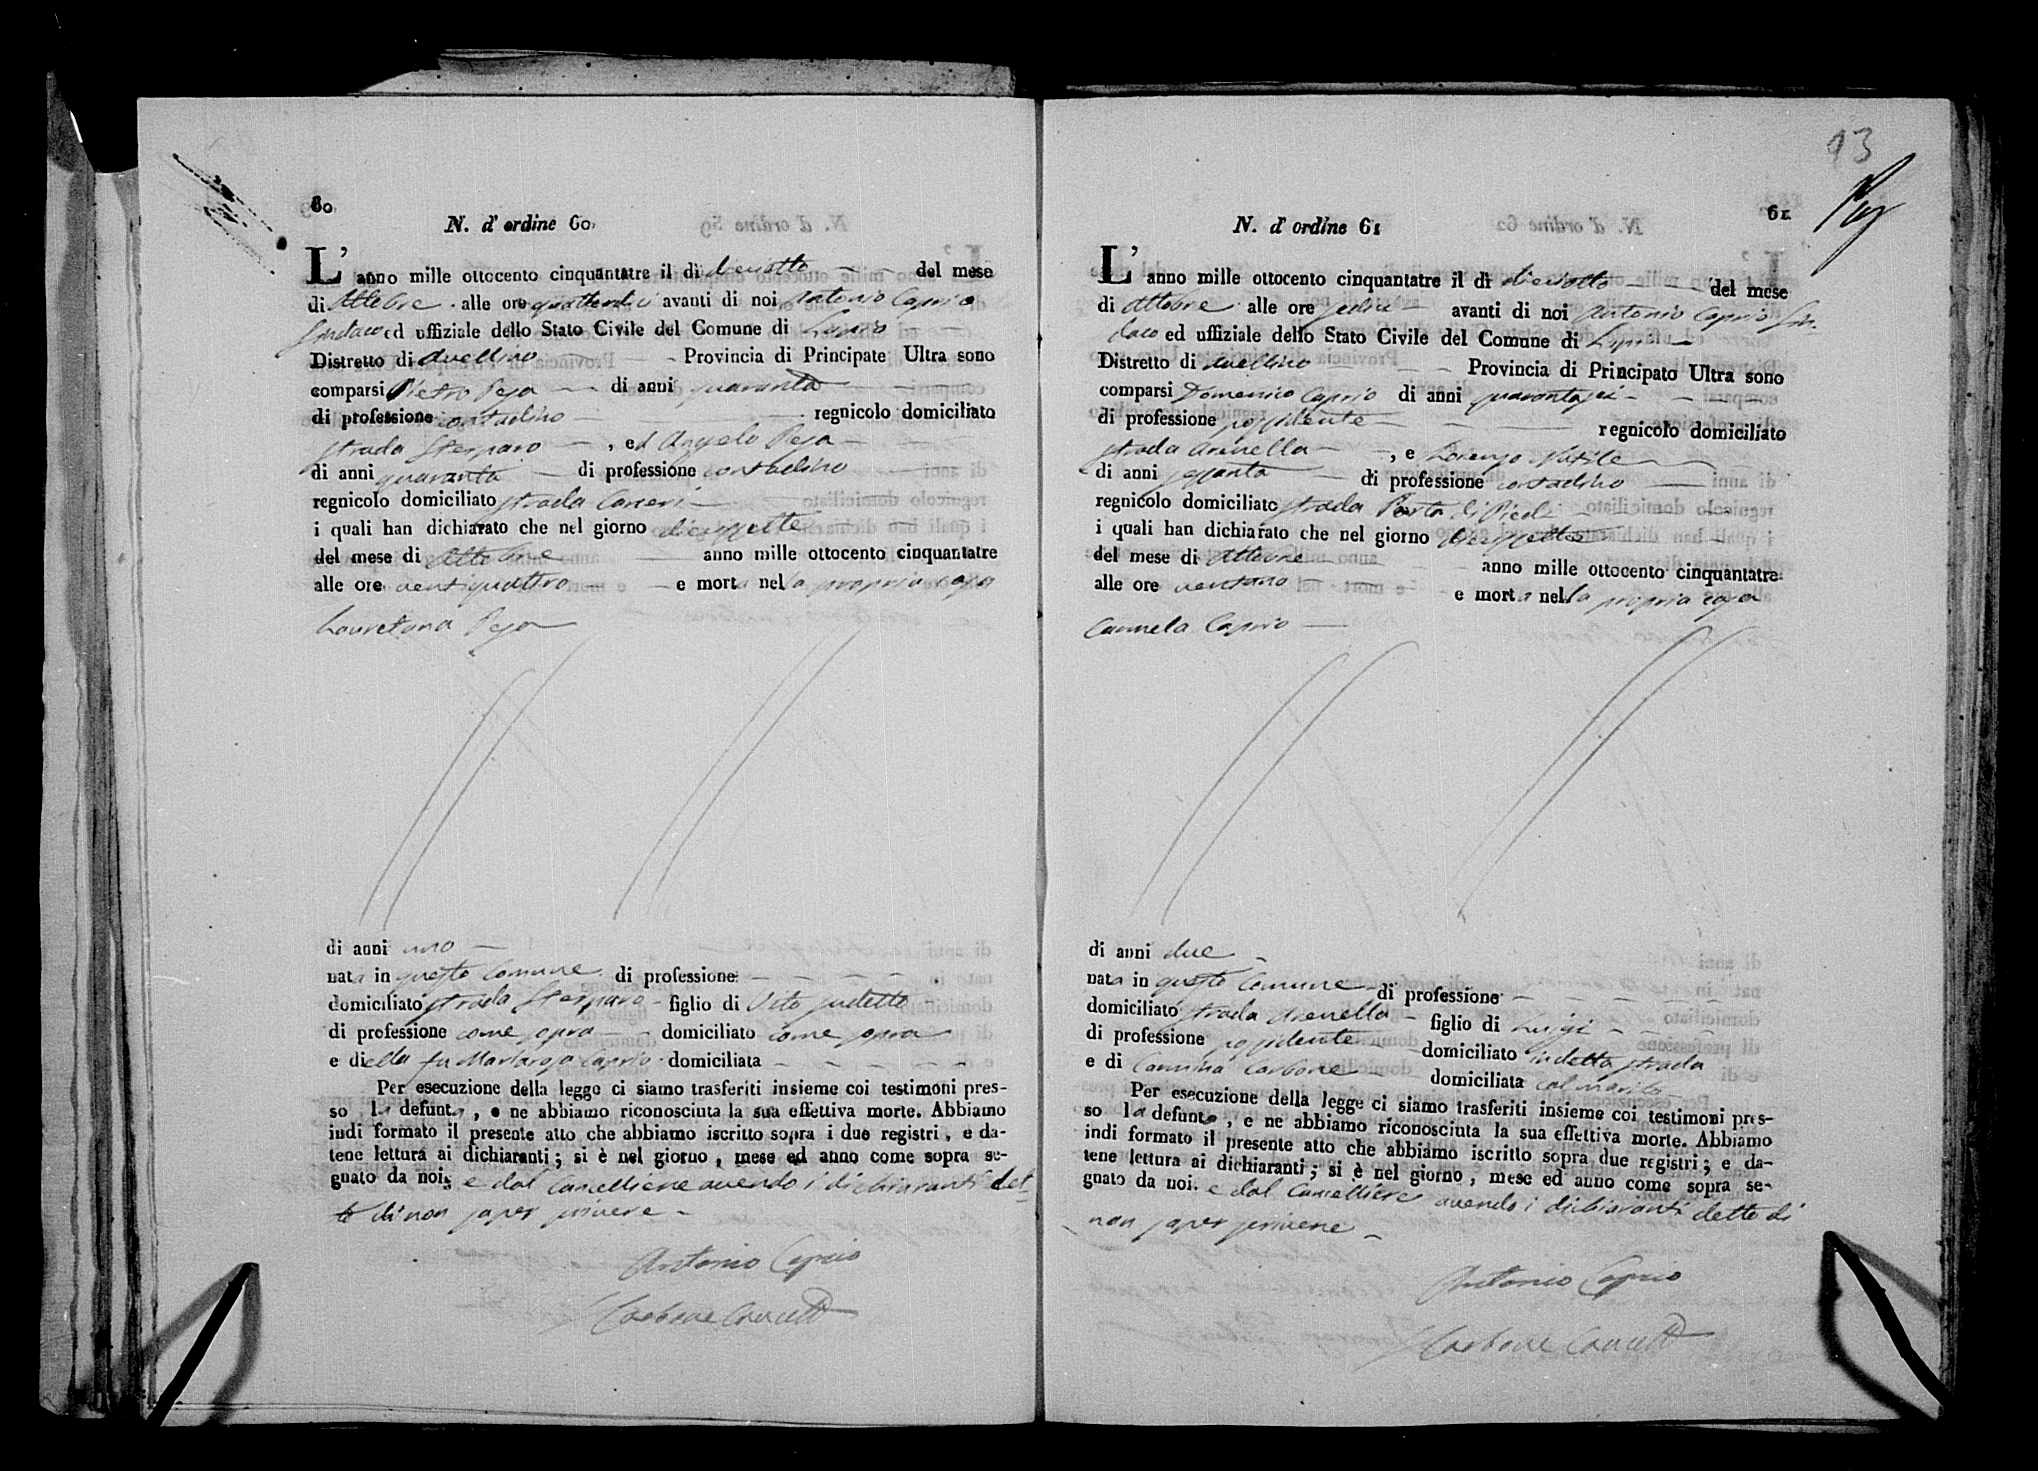 60
N. d' ordine 60
L' anno mille ottocento cinquantatre il dì dieciotto del mese
di Ottobre alle ore quattordici avanti di noi Antonio Caprio
Sindaco ed uffiziale dello Stato Civile del Comune di
Distretto di Avellino Provincia di Principato Ultra sono
comparsi Pietro Pesa di anni quaranta
di professione contadino regnicolo domiciliato
strada Sterparo , ed Angelo Pesa
di anni quaranta di professione contadino
regnicolo domiciliato strada Carceri
i quali han dichiarato che nel giorno diecissette
del mese di Ottobre anno mille ottocento cinquantatre
alle ore ventiquattro e morta nella propria casa
Lauretana Pesa
di anni uno
nata in questo Comune di professione
domiciliato strada Sterparo figlio di Vito sudetto
di professione come sopra domiciliato come sopra
e di ella fu Mariarosa Caprio domiciliata
Per esecuzione della legge ci siamo trasferiti insieme coi testimoni pres-
so la defunta, e ne abbiamo riconosciuta la sua effettiva morte. Abbiamo
indi formato il presente atto che abbiamo iscritto sopra i due registri, e da-
tene lettura ai dichiaranti; si è nel giorno, mese ed anno come sopra se-
gnato da noi, e dal Cancelliere avendo i dichiaranti det-
to di non saper scrivere
Antonio Caprio
Carbone Cancell
93
61
N. d' ordine 61
L' anno mille ottocento cinquantatre il dì dieciotto del mese
di Ottobre alle ore sedici avanti di noi Antonio Caprio Sin-
daco ed uffiziale dello Stato Civile del Comune di
Distretto di Avellino Provincia di Principato Ultra sono
comparsi Domenico Caprio di anni quarantasei
di professione possidente regnicolo domiciliato
strada , e Lorenzo
di anni sessanta di professione contadino
regnicolo domiciliato strada Porta di Piedi
i quali han dichiarato che nel giorno diecissette
del mese di Ottobre anno mille ottocento cinquantatre
alle ore ventuno e morta nella propria casa
Carmela Caprio
di anni due
nata in questo Comune di professione
domiciliato strada figlio di Luigi
di professione possidente domiciliato in detta strada
e di Carmina Carbone domiciliata col marito
Per esecuzione della legge ci siamo trasferiti insieme coi testimoni pres-
so la defunta, e ne abbiamo riconosciuta la sua effettiva morte. Abbiamo
indi formato il presente atto che abbiamo iscritto sopra due registri; e da-
tene lettura ai dichiaranti; si è nel giorno, mese ed anno come sopra se-
gnato da noi. e dal Cancelliere avendo i dichiaranti detto di
non saper scrivere
Antonio Caprio
Carbone Cancell